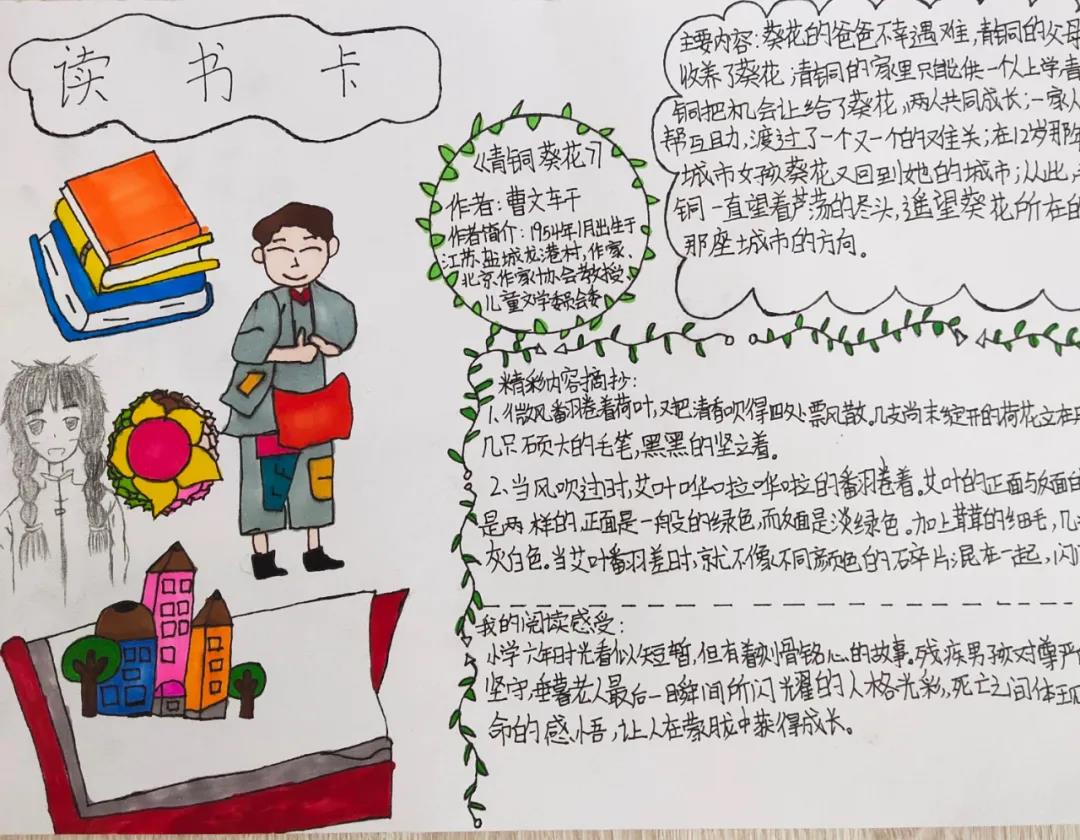 读书卡
《青铜葵花》
作者:曹文轩
作者简介:1954年1月出生于
江苏盐城龙港村,作家、
北京作家协会教授、
儿童文学委员会委
主要内容:葵花的爸爸不幸遇难,青铜的父母
收养了葵花,青铜的家里只能供一个人上学,青
铜把机会让给了葵花,两人共同成长;一家人
帮互助,渡过了一个又一个的难关;在12岁那年
城市女孩葵花又回到她的城市;从此,
铜一直望着芦荡的尽头,遥望葵花所在的
那座城市的方向。
精彩内容摘抄:
1、微风翻卷着荷叶,又把清香吹得四处飘散。几支尚未绽开的荷花立在
几只硕大的毛笔,黑黑的竖立着。
2、当风吹过时,艾叶哗啦哗啦的翻卷着。艾叶的正面与反面的
是两样的,正面是一般的绿色,而反面是淡绿色。加上茸茸的细毛,几
灰白色。当艾叶翻卷时,就不像不同颜色的碎片混在一起,闪
我的阅读感受:
小学六年时光看似短暂,但有着刻骨铭心的故事。残疾男孩对尊严
坚守,垂暮老人最后一瞬间所闪耀的人格光彩,死亡之间体
命的感悟,让人在蒙胧中获得成长。